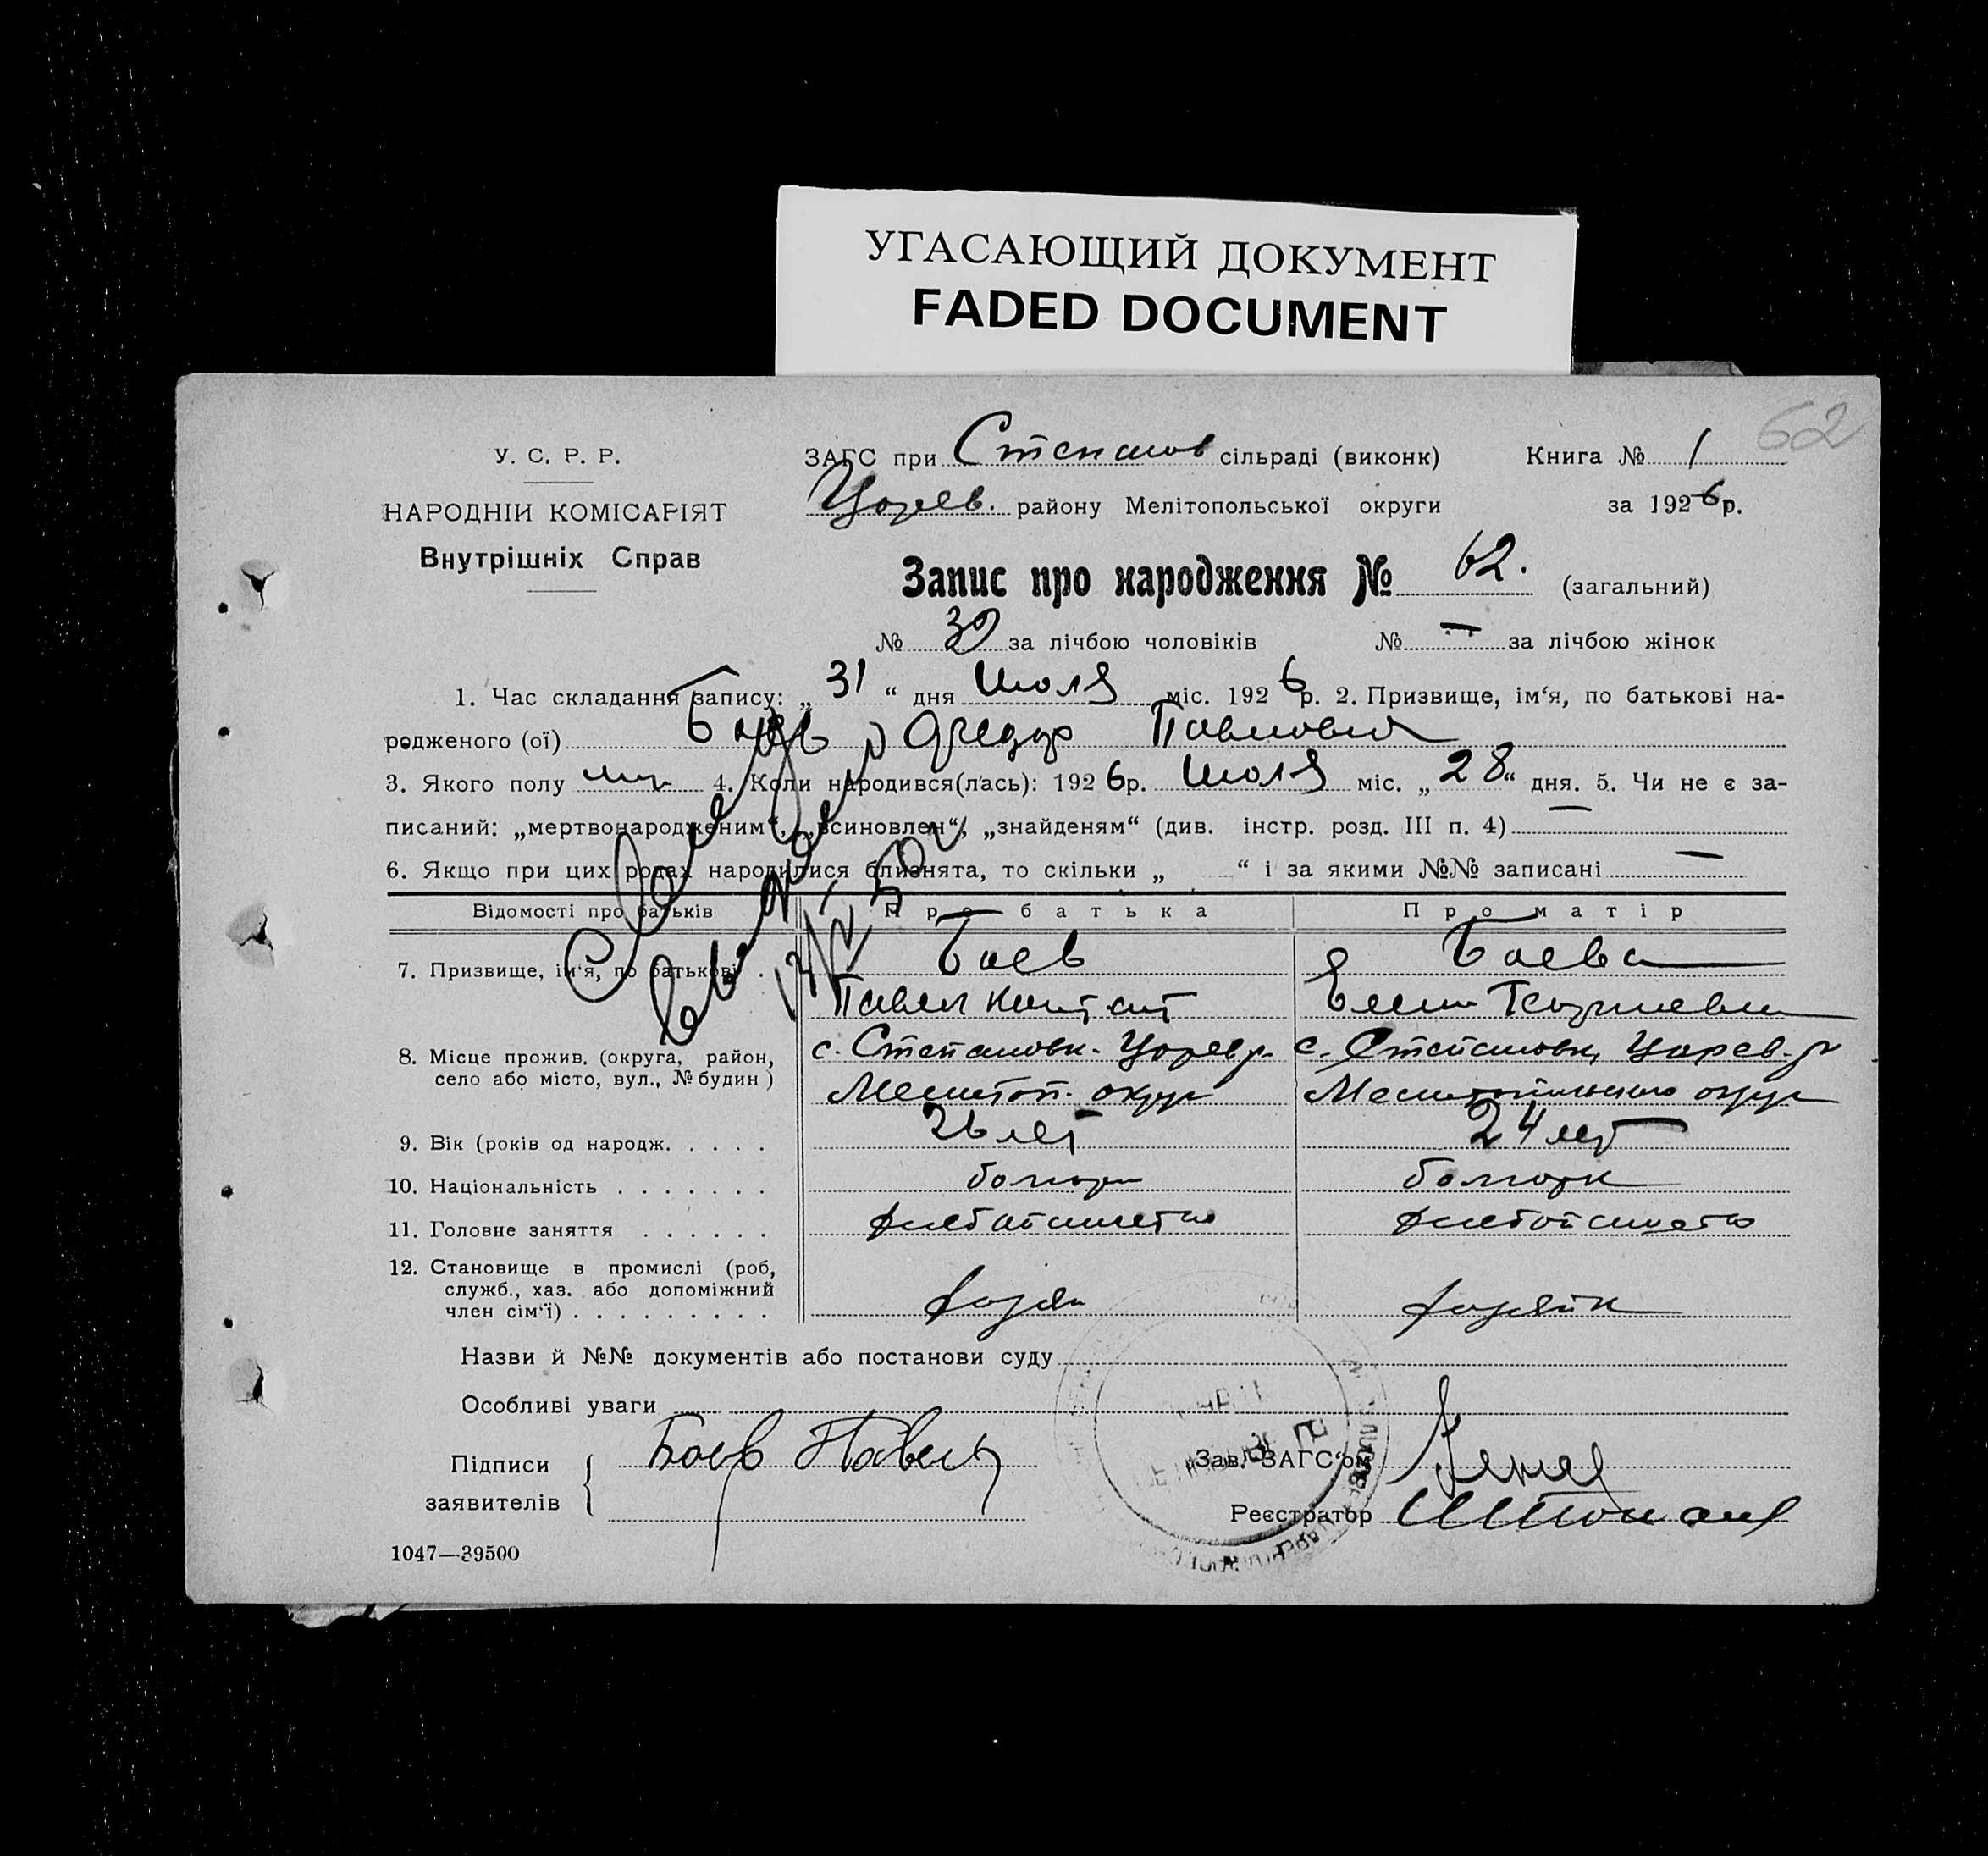 УГАСАЮЩИЙ ДОКУМЕНТ
FADED DOCUMENT
62
У. С. Р. Р.
НАРОДНІИ КОМІСАРІЯТ
Внутрішніх Справ
ЗАГС при Степанов сільраді (виконк) Книга № 1
Царев. району Мелітопольської округи за 1926 р.
Запис про народження № 62. (загальний)
№ 39 за лічбою чоловіків № — за лічбою жінок
1. Час складання запису: „ 31 “ дня Июля міс. 1926 р. 2. Призвище, ім‘я, по батькові на-
родженого (ої) Баев Федор Павлович
3. Якого полу муж 4. Коли народився(лась): 1926 р. Июля міс. „ 28 “ дня. 5. Чи не є за-
писаний: „мертвонародженим“, „всиновлен“, „знайденям“ (див. інстр. розд. III п. 4) —
6. Якщо при цих родах народилися близнята, то скільки „ “ і за якими №№ записані —
Відомості про батьків Про батька Про матір
7. Призвище, ім‘я, по батькові . Баев Баева
Павел Констант Елена Георгиевна
8. Місце прожив. (округа, район, с. Степановк. Царев р. с. Степановк, Царев. р
село або місто, вул., № будин ) Мелитоп. округ Мелитопольского округ
9. Вік (років од народж. . . . . 26 лет 24 лет
10. Національність . . . . . . . болгари болгарк
11. Головне заняття . . . . . . хлебопашество хлебопашество
12. Становище в промислі (роб,
служб., хаз. або допоміжний
член сім‘ї) . . . . . . . . . хозяи хозяйк
Назви й №№ документів або постанови суду
Особливі уваги
Підписи Баев Павел Зав. ЗАГС‘ом
заявителів Реєстратор
1047—39500